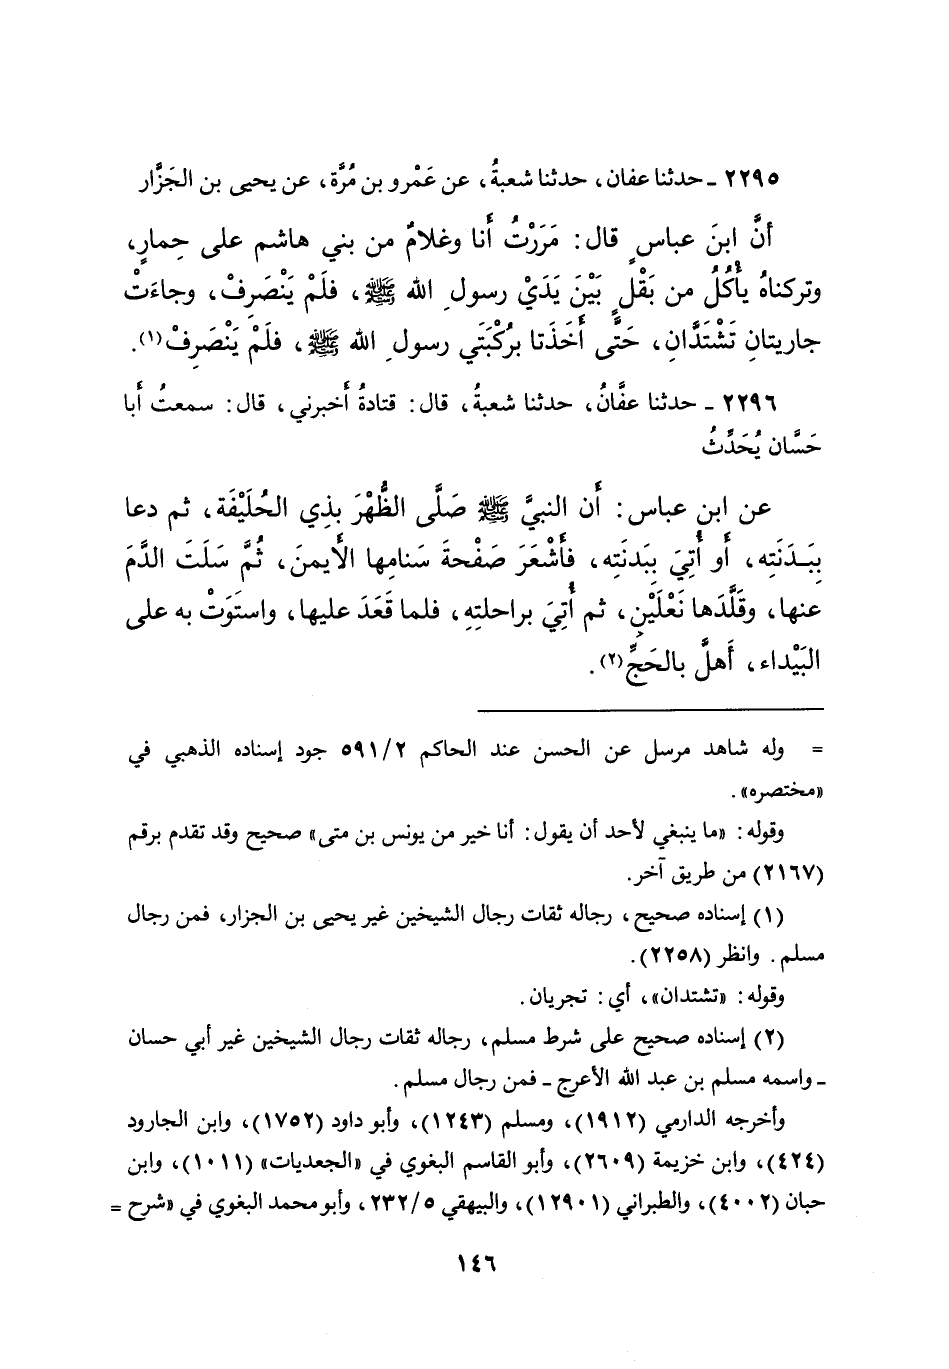 ٢٢٩٥ ـ حدثنا عفان، حدثنا شعبةُ، عن عَمْرو بن مُرَّة، عن يحيى بن الجَزَّار
أنَّ ابنَ عباسٍ قال: مَرَرْتُ أنا وغلامٌ من بني هاشم على حِمارٍ،
وتركناهُ يأْكُلُ من بَقْلٍ بَيْنَ يَدَيْ رسولِ الله ﷺ، فلَمْ يَنْصَرِفْ، وجاءَتْ
جاريتانِ تَشْتَدَّانِ، حَتَّى أَخَذَتا بُركْبَتَي رسولِ الله ﷺ، فلَمْ يَنْصَرِفْ(١).
٢٢٩٦ ـ حدثنا عفَّانُ، حدثنا شعبةُ، قال: قتادةُ أخبرني، قال: سمعتُ أبا
حَسَّان يُحَدِّثُ
عن ابنِ عباس: أَن النبيَّ ﷺ صَلَّى الظُّهْرَ بِذي الحُلَيْفَة، ثم دعا
بِبَدَنَتِه، أَو أُتِيَ بِبَدنَتِه، فأَشْعَرَ صَفْحةَ سَنامِها الأَيمنَ، ثُمَّ سَلَتَ الدَّمَ
عنها، وقَلَّدَها نَعْلَيْنِ، ثم أُتِيَ براحلتِهِ، فلما قَعَدَ عليها، واستَوَتْ به على
البَيْداء، أَهلَّ بالحَجِّ(٢).
= وله شاهد مرسل عن الحسن عند الحاكم ٥٩١/٢ جود إسناده الذهبي في
«مختصره».
وقوله: «ما ينبغي لأحد أن يقول: أنا خير من يونس بن متى» صحيح وقد تقدم برقم
(٢١٦٧) من طريق آخر.
(١) إسناده صحيح، رجاله ثقات رجال الشيخين غير يحيى بن الجزار، فمن رجال
مسلم. وانظر (٢٢٥٨).
وقوله: «تشتدان»، أي: تجريان.
(٢) إسناده صحيح على شرط مسلم، رجاله ثقات رجال الشيخين غير أبي حسان
ـ واسمه مسلم بن عبد الله الأعرج ـ فمن رجال مسلم.
وأخرجه الدارمي (١٩١٢)، ومسلم (١٢٤٣)، وأبو داود (١٧٥٢)، وابن الجارود
(٤٢٤)، وابن خزيمة (٢٦٠٩)، وأبو القاسم البغوي في «الجعديات» (١٠١١)، وابن
حبان (٤٠٠٢)، والطبراني (١٢٩٠١)، والبيهقي ٢٣٢/٥، وأبو محمد البغوي في «شرح =
١٤٦